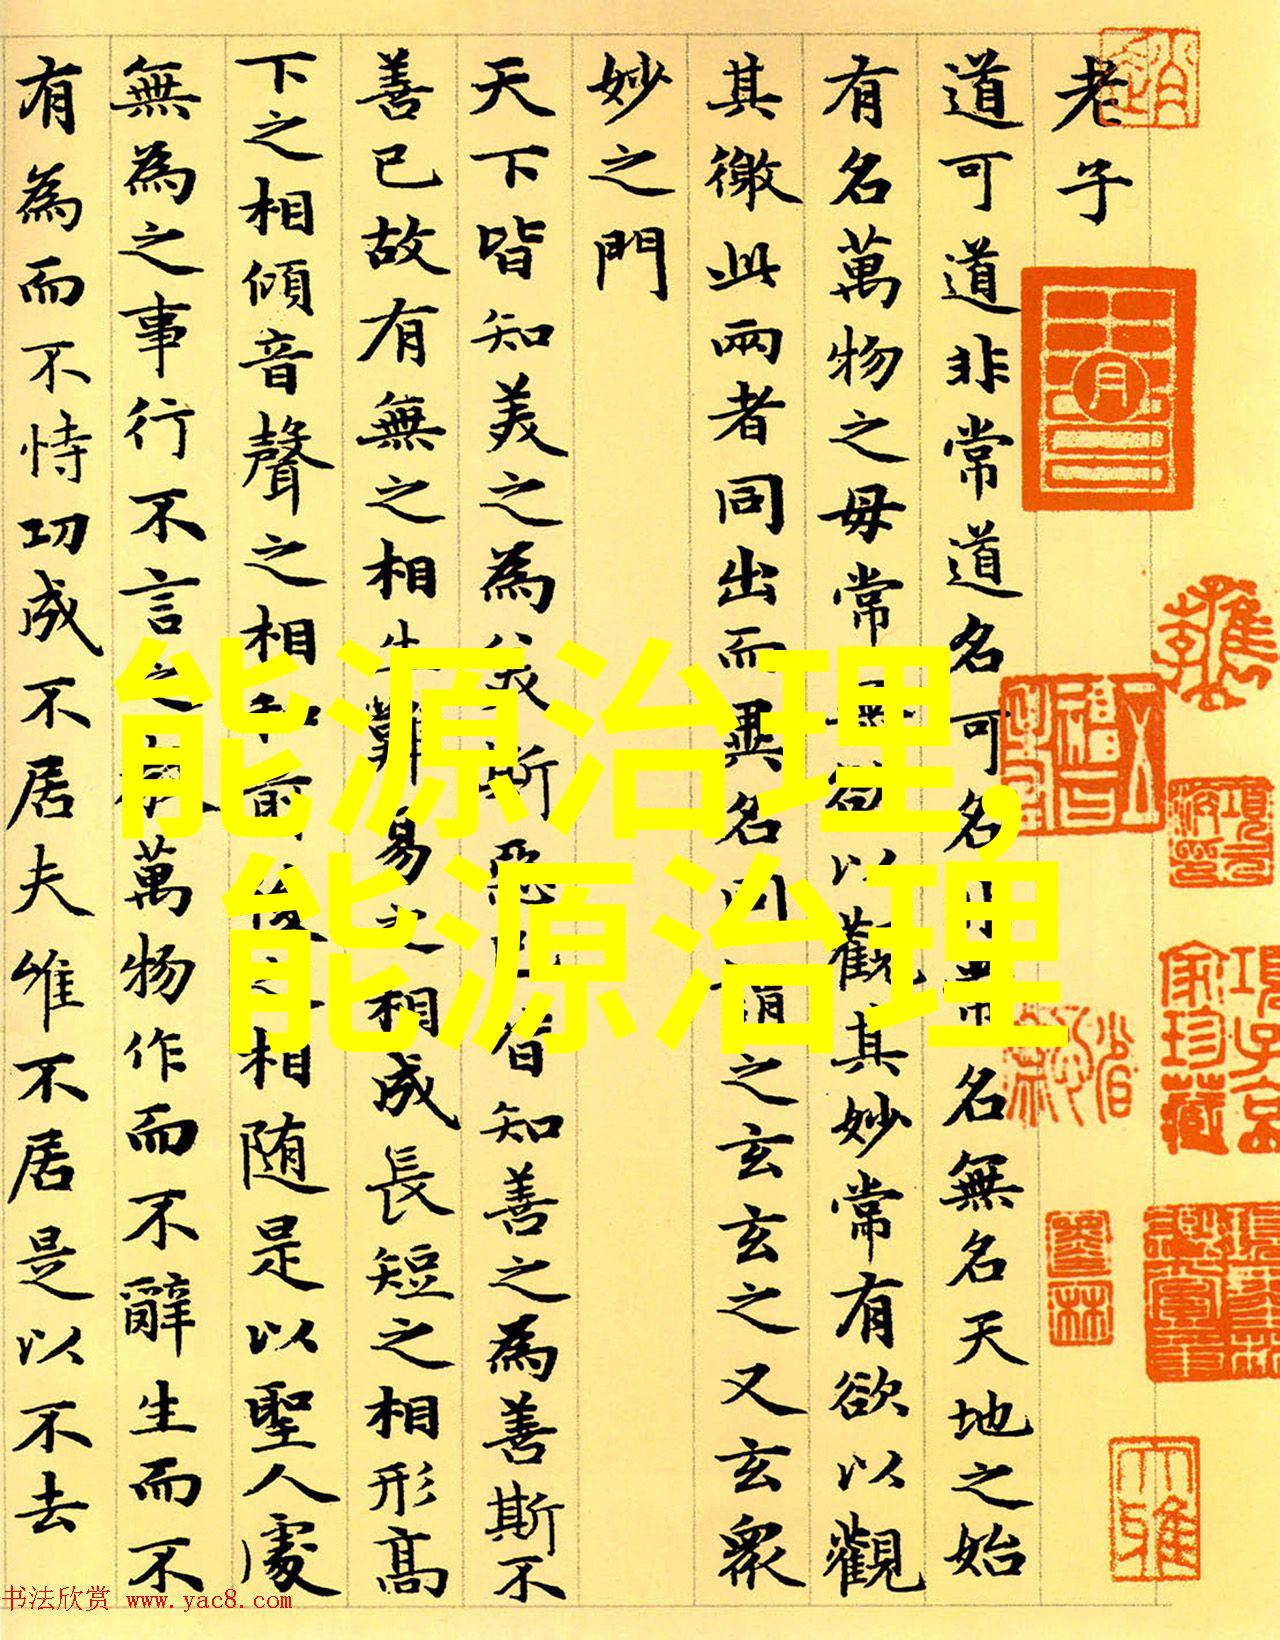 老子
道可道非常道名可名非常名無名天地之始
有名萬物之母常無欲以觀其妙常有欲以觀
其徼此兩者同出而異名同謂之玄玄之又玄衆
妙之門
天下皆知美之為美斯惡已皆知善之為善斯不
善已故有無之相生難易之相成長短之相形高
下之相傾音聲之相和前後之相随是以聖人處
無為之事行不言之教萬物作而不辭生而不
有為而不恃功成不居夫唯不居是以不去
能源治理,
能源治理
书法欣赏 www.yac8.com